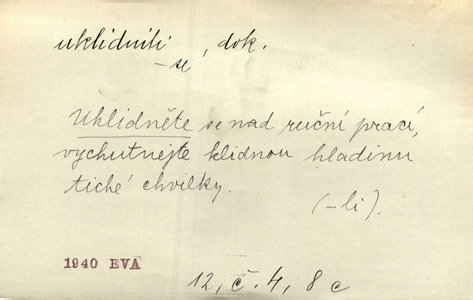 uklidniti , dok.
– se
Uklidněte se nad ruční prací,
vychutnejte klidnou hladinu
tiché chvilky.
(–li).
1940 EVA
12, č. 4, 8 c